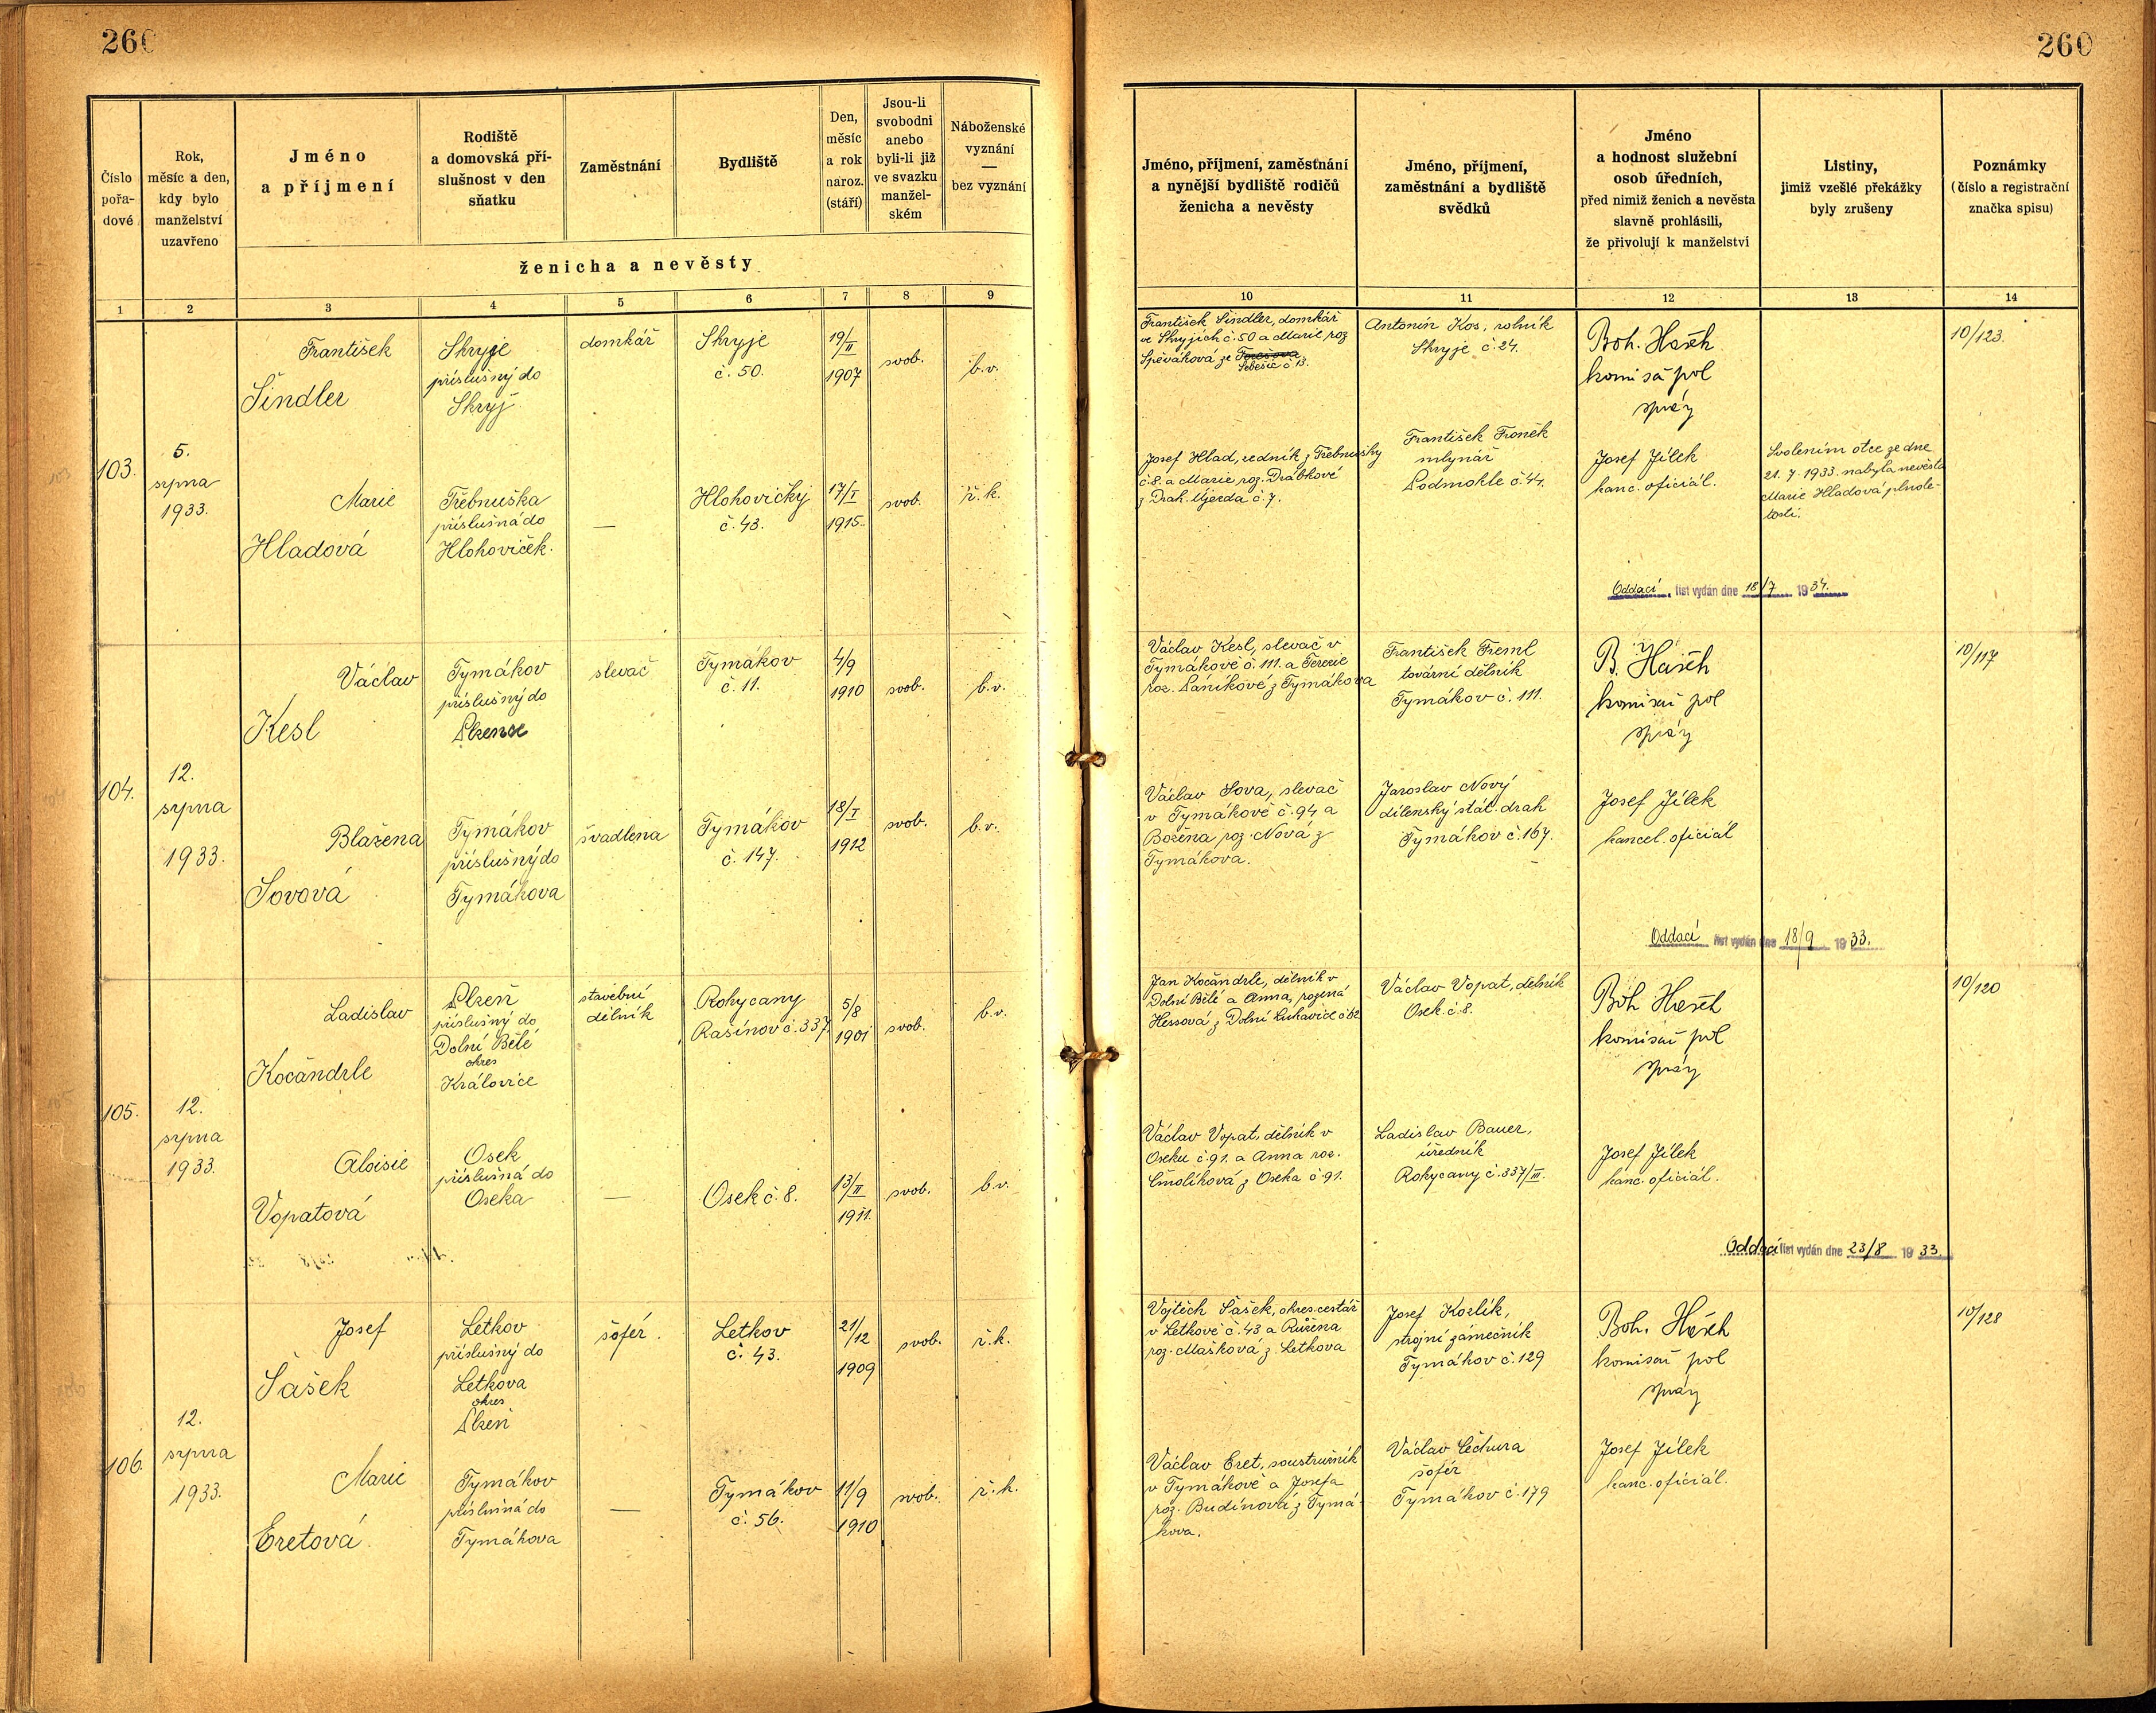 260
260
Číslo
pořa-
dové
Rok,
měsíc a den,
kdy bylo
manželství
uzavřeno
Jméno
a příjmení
Rodiště
a domovská pří-
slušnost v den
sňatku
Zaměstnání
Bydliště
Den,
měsíc
a rok
naroz.
(stáří)
Jsou-li
svobodni
anebo
byli-li již
ve svazku
manžel-
ském
Náboženské
vyznání
—
bez vyznání
ženicha a nevěsty
Jméno, příjmení, zaměstnání
a nynější bydliště rodičů
ženicha a nevěsty
Jméno, příjmení,
zaměstnání a bydliště
svědků
Jméno
a hodnost služební
osob úředních,
před nimiž ženich a nevěsta
slavně prohlásili,
že přivolují k manželství
Listiny,
jimiž vzešlé překážky
byly zrušeny
Poznámky
(číslo a registrační
značka spisu)
1 2 3 4 5 6 7 8 9
10 11 12 13 14
103.
5.
srpna
1933.
František
Šindler
Skryje
příslušný do
Skryj
domkář
Skryje
č. 50.
19/II
1907
svob.
b.v.
Marie
Hladová
Třebnuška
příslušná do
Hlohoviček.
—
Hlohovičky
č. 43.
17/I
1915.
svob.
ř.k.
František Šindler, domkář
ve Skryjích č. 50 a Marie roz
Spěváková ze
Šebešic č. 13.
Antonín Kos, rolník
Skryje č. 24.
Boh. Hašek
komisař pol
správy
10/123.
Josef Hlad, redník z Třebnušky
č. 8. a Marie roz. Drábkové
z Drah. Újezda č. 7.
František Froněk
mlynář
Podmokle č. 44.
Josef Jílek
kanc. oficiál.
Svolením otce ze dne
21. 7. 1933. nabyla nevěsta
Marie Hladová plnole-
tosti.
Oddací list vydán dne 18/7 1934.
104.
12.
srpna
1933.
Václav
Kesl
Tymákov
příslušný do
Plzence
slevač
Tymákov
č. 11.
4/9
1910
svob.
b.v.
Blažena
Sovová
Tymákov
příslušný do
Tymákova
švadlena
Tymákov
č. 147.
18/I
1912
svob.
b.v.
Václav Kesl, slevač v
Tymákově č. 111. a Terezie
roz. Páníkové z Tymákova
František Treml
tovární dělník
Tymákov č. 111.
B. Hašek
komisař pol
správy
10/117
Václav Sova, slevač
v Tymákově č. 94 a
Božena roz. Nová z
Tymákova.
Jaroslav Nový
dílenský stát. drah
Tymákov č. 167.
Josef Jílek
kancel. oficiál
Oddací list vydán dne 18/9 1933.
105.
12.
srpna
1933.
Ladislav
Kočandrle
Plzeň
příslušný do
Dolní Bělé
okres
Kralovice
stavební
dělník
Rokycany
Rašínov č. 337.
5/8
1901
svob.
b.v.
Aloisie
Vopatová
Osek
příslušná do
Oseka
—
Osek č. 8.
13/II
1911.
svob.
b.v.
Jan Kočandrle, dělník v
Dolní Bělé a Anna, rozená
Hessová z Dolní Lukavice č 62
Václav Vopat, dělník
Osek. č. 8.
Boh Hašek
komisař pol
správy
10/120
Václav Vopat, dělník v
Oseku č. 91. a Anna roz.
Smolíková z Oseka č. 91.
Ladislav Bauer,
úředník
Rokycany č. 337/III.
Josef Jílek
kanc. oficiál.
Oddací list vydán dne 23/8 1933.
106.
12.
srpna
1933.
Josef
Šašek
Letkov
příslušný do
Letkova
okres
Plzeň
šofér.
Letkov
č. 43.
21/12
1909
svob.
ř.k.
Marie
Eretová
Tymákov
příslušná do
Tymákova
—
Tymákov
č. 56.
11/9
1910
svob.
ř.k.
Vojtěch Šašek, okres. cestář
v Letkově č. 43 a Růžena
roz. Mašková z Letkova
Josef Kozlík,
strojní zámečník
Tymákov č. 129
Boh. Hašek
komisař pol
správy
10/128
Václav Eret, soustružník
v Tymákově a Josefa
roz. Budínová z Tymá-
kova.
Václav Čechura
šofér
Tymákov č. 179
Josef Jílek
kanc. oficiál.